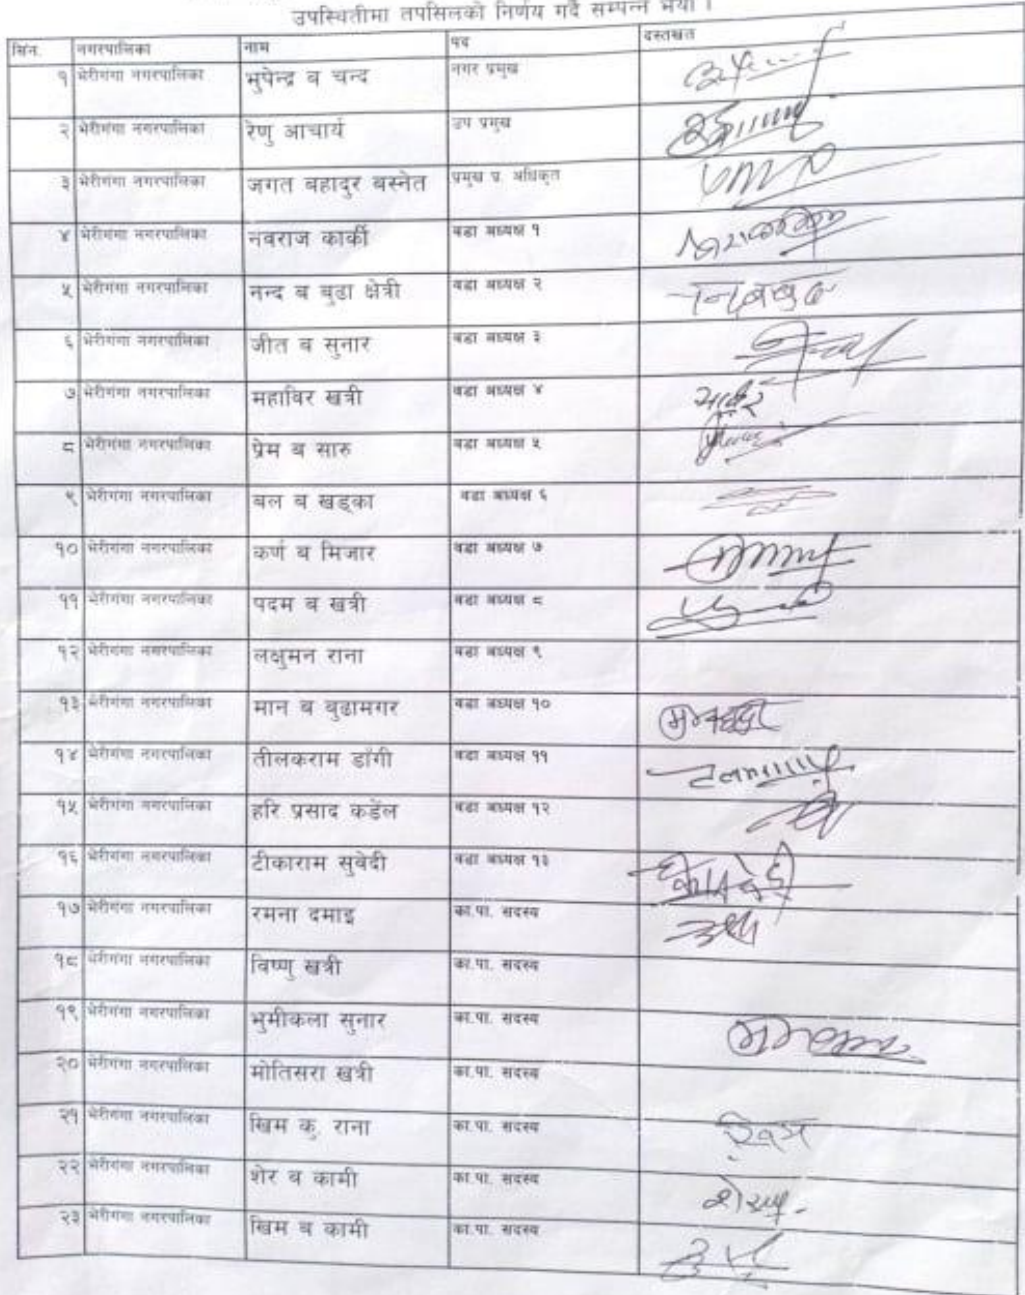 उपस्थितीमा तपसिलको निर्णय गर्दै सम्पन्न भयो ।
सि.नं. नगरपालिका नाम पद दस्तखत
१ भेरीगंगा नगरपालिका भुपेन्द्र ब चन्द नगर प्रमुख
२ भेरीगंगा नगरपालिका रेणु आचार्य उप प्रमुख
३ भेरीगंगा नगरपालिका जगत बहादुर बस्नेत प्रमुख प्र. अधिकृत
४ भेरीगंगा नगरपालिका नवराज कार्की वडा अध्यक्ष १
५ भेरीगंगा नगरपालिका नन्द ब बुढा क्षेत्री वडा अध्यक्ष २
६ भेरीगंगा नगरपालिका जीत ब सुनार वडा अध्यक्ष ३
७ भेरीगंगा नगरपालिका महाविर खत्री वडा अध्यक्ष ४
८ भेरीगंगा नगरपालिका प्रेम ब सारु वडा अध्यक्ष ५
९ भेरीगंगा नगरपालिका बल ब खड्का वडा अध्यक्ष ६
१० भेरीगंगा नगरपालिका कर्ण ब मिजार वडा अध्यक्ष ७
११ भेरीगंगा नगरपालिका पदम ब खत्री वडा अध्यक्ष ८
१२ भेरीगंगा नगरपालिका लक्षुमन राना वडा अध्यक्ष ९
१३ भेरीगंगा नगरपालिका मान ब बुढामगर वडा अध्यक्ष १०
१४ भेरीगंगा नगरपालिका तीलकराम डाँगी वडा अध्यक्ष ११
१५ भेरीगंगा नगरपालिका हरि प्रसाद कडेंल वडा अध्यक्ष १२
१६ भेरीगंगा नगरपालिका टीकाराम सुवेदी वडा अध्यक्ष १३
१७ भेरीगंगा नगरपालिका रमना दमाइ का.पा. सदस्य
१८ भेरीगंगा नगरपालिका विष्णु खत्री का.पा. सदस्य
१९ भेरीगंगा नगरपालिका भुमीकला सुनार का.पा. सदस्य
२० भेरीगंगा नगरपालिका मोतिसरा खत्री का.पा. सदस्य
२१ भेरीगंगा नगरपालिका खिम कु. राना का.पा. सदस्य
२२ भेरीगंगा नगरपालिका शेर ब कामी का.पा. सदस्य
२३ भेरीगंगा नगरपालिका खिम ब कामी का.पा. सदस्य